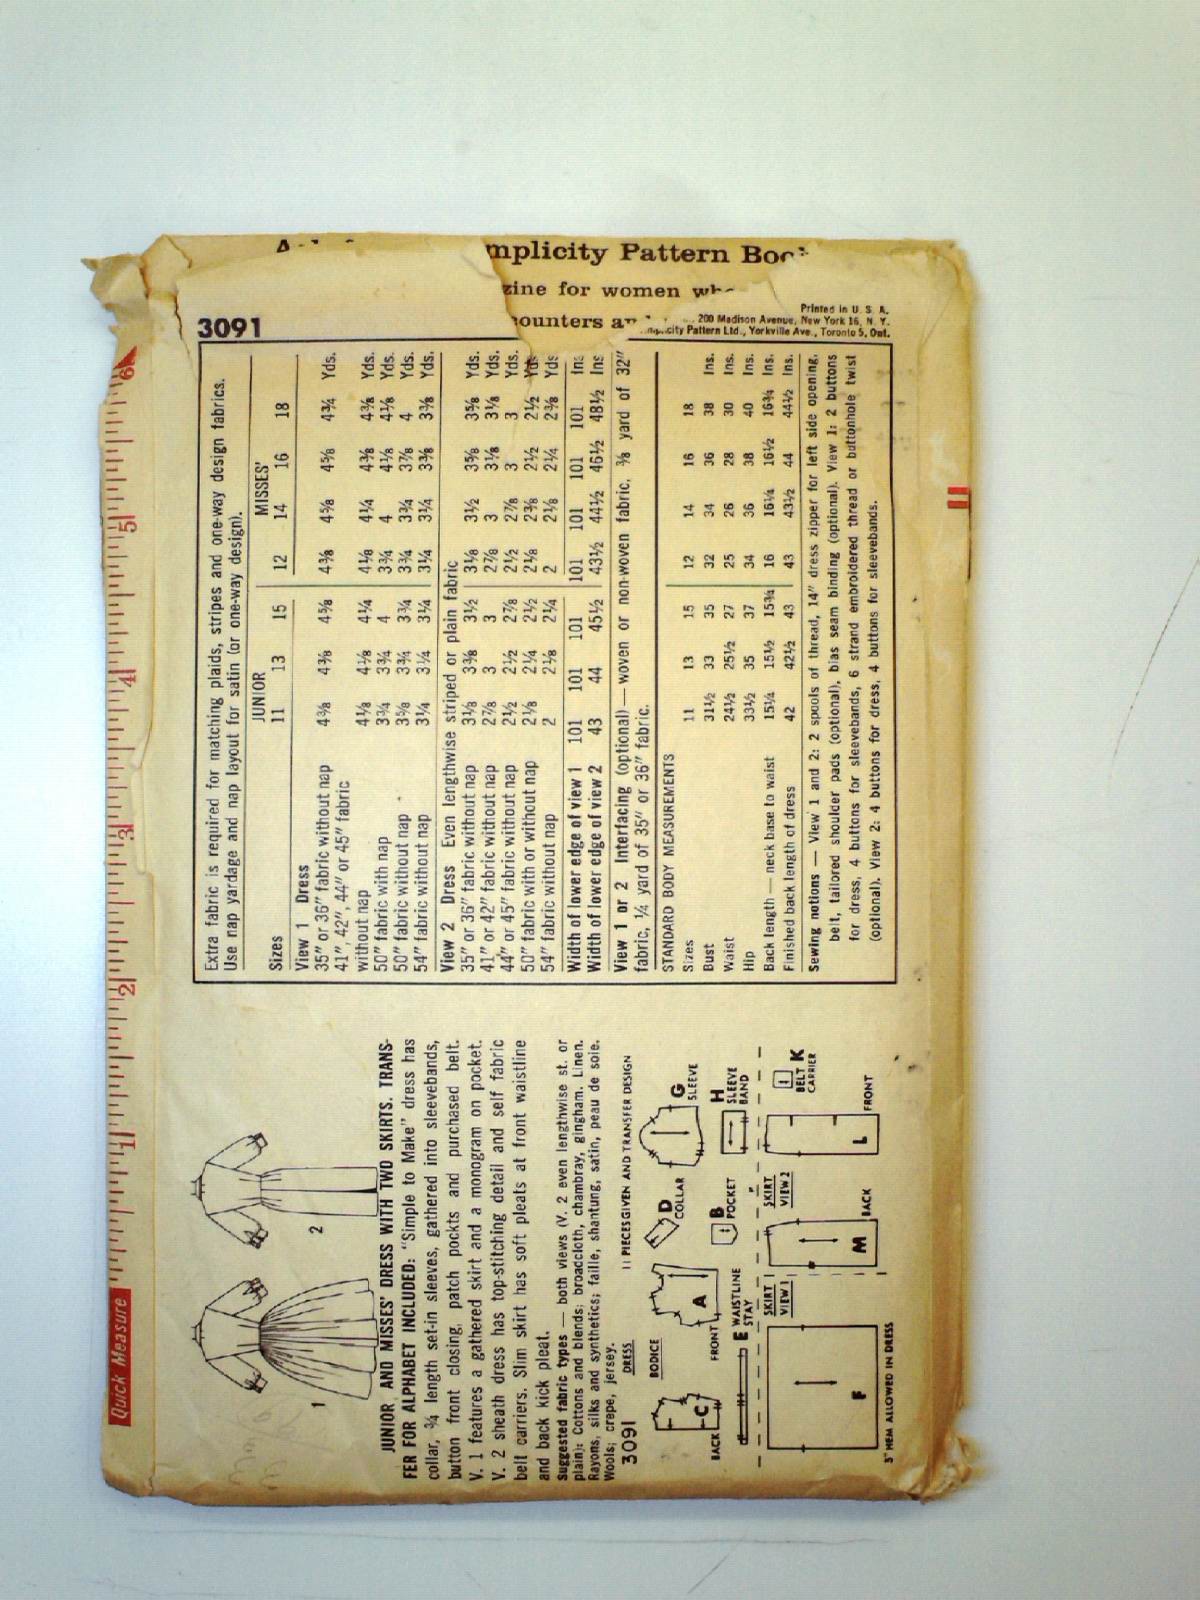 mplicity Pattern
zine for women
counters
3091
Printed in U. S. A.
200 Madison Avenue, New York 16, N. Y.
city Pattern Ltd., Yorkville Ave., Toronto 5, Ont.
Quick Measure
1 2 3 4 5 6
1
2
JUNIOR AND MISSES' DRESS WITH TWO SKIRTS. TRANS-
FER FOR ALPHABET INCLUDED: "Simple to Make" dress has
collar, ¾ length set-in sleeves, gathered into sleevebands,
button front closing, patch pockts and purchased belt.
V. 1 features a gathered skirt and a monogram on pocket.
V. 2 sheath dress has top-stitching detail and self fabric
belt carriers. Slim skirt has soft pleats at front waistline
and back kick pleat.
Suggested fabric types — both views (V. 2 even lengthwise st. or
plain): Cottons and blends; broadcloth, chambray, gingham. Linen.
Rayons, silks and synthetics; faille, shantung, satin, peau de soie.
Wools; crepe, jersey.
3091
DRESS
11 PIECES GIVEN AND TRANSFER DESIGN
BODICE
BACK
C
FRONT
A
D
COLLAR
G
SLEEVE
E WAISTLINE
STAY
B
POCKET
H
SLEEVE
BAND
SKIRT
VIEW 1
F
3" HEM ALLOWED IN DRESS
SKIRT
VIEW 2
M
BACK
L
FRONT
K
BELT
CARRIER
Extra fabric is required for matching plaids, stripes and one-way design fabrics.
Use nap yardage and nap layout for satin (or one-way design).
JUNIOR MISSES'
Sizes 11 13 15 12 14 16 18
View 1 Dress
35" or 36" fabric without nap 4⅜ 4⅜ 4⅝ 4⅜ 4⅝ 4⅝ 4¾ Yds.
41", 42", 44" or 45" fabric
without nap 4⅛ 4⅛ 4¼ 4⅛ 4¼ 4⅜ 4⅜ Yds.
50" fabric with nap 3¾ 3¾ 4 3¾ 4 4⅛ 4⅛ Yds.
50" fabric without nap 3⅝ 3¾ 3¾ 3¾ 3¾ 3⅞ 4 Yds.
54" fabric without nap 3¼ 3¼ 3¼ 3¼ 3¼ 3⅜ 3⅜ Yds.
View 2 Dress Even lengthwise striped or plain fabric
35" or 36" fabric without nap 3⅛ 3⅜ 3½ 3⅛ 3½ 3⅝ 3⅝ Yds.
41" or 42" fabric without nap 2⅞ 3 3 2⅞ 3 3⅛ 3⅛ Yds.
44" or 45" fabric without nap 2½ 2½ 2⅞ 2½ 2⅞ 3 3 Yds.
50" fabric with or without nap 2⅛ 2¼ 2½ 2⅛ 2⅜ 2½ 2½ Yds
54" fabric without nap 2 2⅛ 2¼ 2 2⅛ 2¼ 2⅜ Yds
Width of lower edge of view 1 101 101 101 101 101 101 101 Ins
Width of lower edge of view 2 43 44 45½ 43½ 44½ 46½ 48½ Ins
View 1 or 2 Interfacing (optional) — woven or non-woven fabric, ⅜ yard of 32"
fabric, ¼ yard of 35" or 36" fabric.
STANDARD BODY MEASUREMENTS
Sizes 11 13 15 12 14 16 18
Bust 31½ 33 35 32 34 36 38 Ins.
Waist 24½ 25½ 27 25 26 28 30 Ins.
Hip 33½ 35 37 34 36 38 40 Ins.
Back length — neck base to waist 15¼ 15½ 15¾ 16 16¼ 16½ 16¾ Ins.
Finished back length of dress 42 42½ 43 43 43½ 44 44½ Ins.
Sewing notions — View 1 and 2: 2 spools of thread, 14" dress zipper for left side opening,
belt, tailored shoulder pads (optional), bias seam binding (optional). View 1: 2 buttons
for dress, 4 buttons for sleevebands, 6 strand embroidered thread or buttonhole twist
(optional). View 2: 4 buttons for dress, 4 buttons for sleevebands.